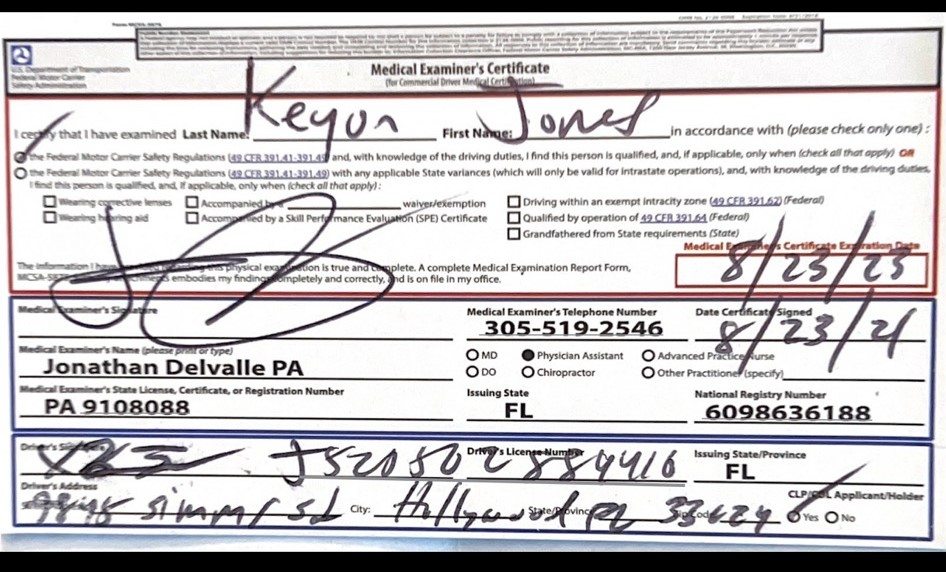 U.S. Department of Transportation
Federal Motor Carrier
Safety Administration
Medical Examiner's Certificate
(for Commercial Driver Medical Certification)
I certify that I have examined Last Name: Keyon First Name: Jones in accordance with (please check only one) :
the Federal Motor Carrier Safety Regulations (49 CFR 391.41-391.49) and, with knowledge of the driving duties, I find this person is qualified, and, if applicable, only when (check all that apply) OR
the Federal Motor Carrier Safety Regulations (49 CFR 391.41-391.49) with any applicable State variances (which will only be valid for intrastate operations), and, with knowledge of the driving duties,
I find this person is qualified, and, if applicable, only when (check all that apply) :
Wearing corrective lenses Accompanied by a waiver/exemption Driving within an exempt intracity zone (49 CFR 391.62) (Federal)
Wearing hearing aid Accompanied by a Skill Performance Evaluation (SPE) Certificate Qualified by operation of 49 CFR 391.64 (Federal)
Grandfathered from State requirements (State)
Medical Examiner's Certificate Expiration Date
8/23/23
The information I have this physical examination is true and complete. A complete Medical Examination Report Form,
embodies my findings completely and correctly, and is on file in my office.
Medical Examiner's Signature Medical Examiner's Telephone Number Date Certificate Signed
305-519-2546 8/23/21
Medical Examiner's Name (please print or type) MD Physician Assistant Advanced Practice Nurse
Jonathan Delvalle PA DO Chiropractor Other Practitioner (specify)
Medical Examiner's State License, Certificate, or Registration Number Issuing State National Registry Number
PA 9108088 FL 6098636188
Driver's Signature Driver's License Number Issuing State/Province
FL
Driver's Address CLP/CDL Applicant/Holder
City: Hollywood State/Province FL Zip Code Yes No